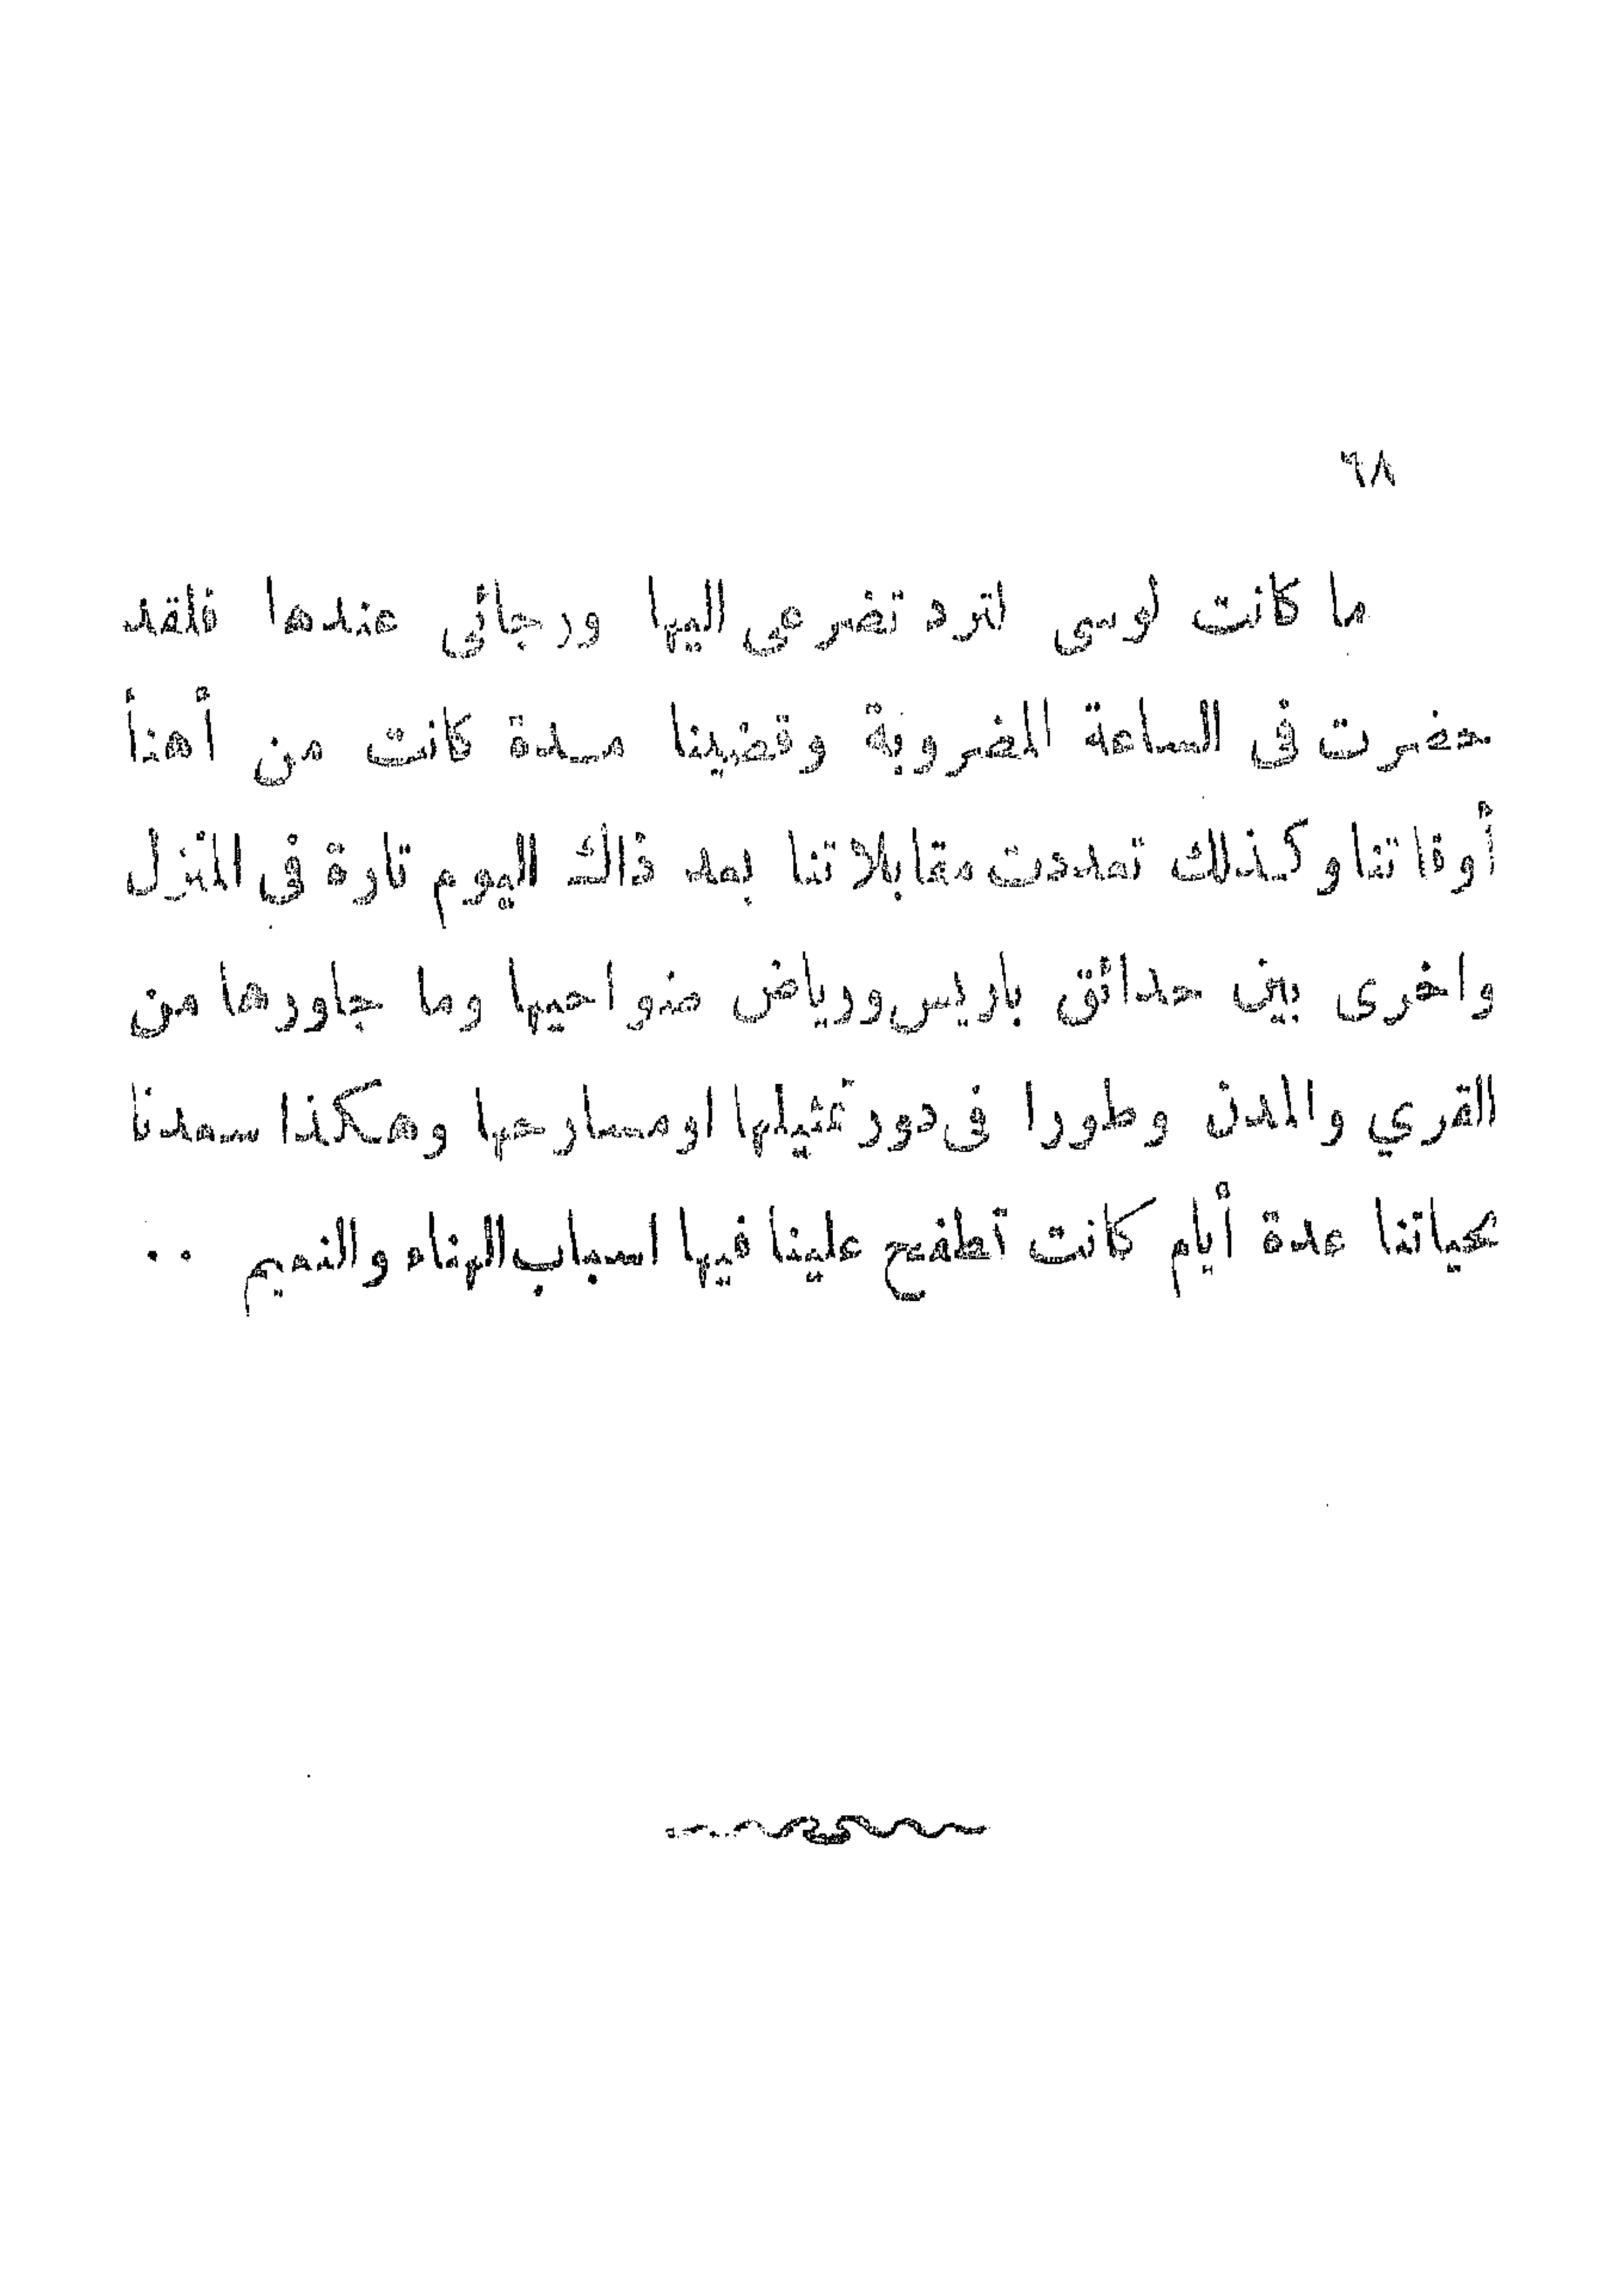 ٦٨
ما كانت لوسى لترد تضرعى اليها ورجائى عندها فلقد
حضرت فى الساعة المضروبة وقضينا مدة كانت من أهنأ
أوقاتنا وكذلك تعددت مقابلاتنا بعد ذاك اليوم تارة فى المنزل
واخرى بين حدائق باريس ورياض ضواحيها وما جاورها من
القري والمدن وطورا فى دور تمثيلها او مسارحها وهكذا سعدنا
بحياتنا عدة أيام كانت تطفح علينا فيها اسباب الهناء والنعيم ..